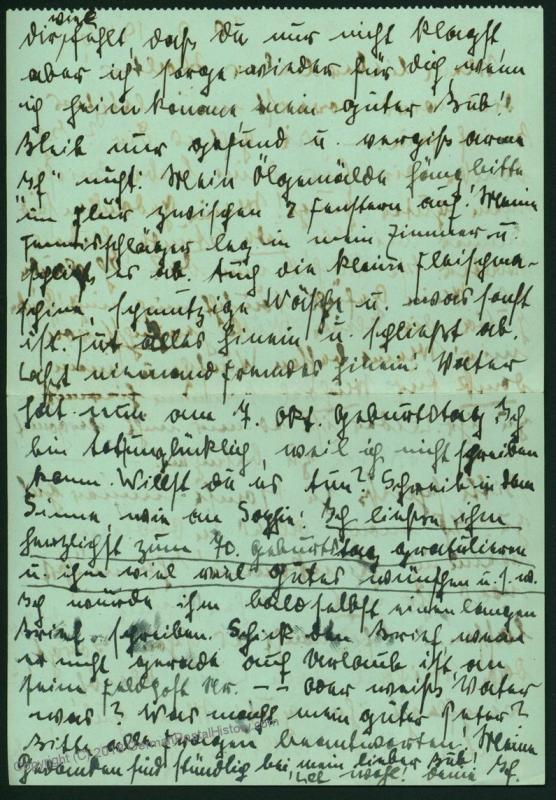 viel
dir fehlt, daß du nur nicht klagst,
aber ich sorge wieder für dich wenn
ich heimkomme, mein guter Bub!
Bleib nur gesund u. vergiß arme
"Ich" nicht. Mein Ölgemälde häng bitte
im Flur zwischen 2 Fenstern auf! Meine
Tennisschläger leg in mein Zimmer u.
schließ es ab. Auch die kleine Fleischma-
schine, schmutzige Wäsche u. was sonst
ist. Tut alles hinein u. schließt ab.
Laßt niemand Fremdes hinein! Vater
hat nun am 7. Okt. Geburtstag. Ich
bin totunglücklich, weil ich nicht schreiben
kann. Willst du es tun? Schreibe in dem
Sinne, wie an Sophie: Ich ließe ihm
herzlichst zum 70. Geburtstag gratulieren
u. ihm viel viel Gutes wünschen u.s.w.
Ich würde ihm bald selbst einen langen
Brief schreiben. Schick den Brief, wenn
er nicht gerade auf Urlaub ist, an
seine Feldpost Nr. -- oder weiß Vater
was? Was macht mein guter Peter?
Bitte alle Fragen beantworten! Meine
Gedanken sind stündlich bei, mein lieber Bub!
Leb wohl! Deine Ich.
Copyright (C) GermanPostalHistory.com